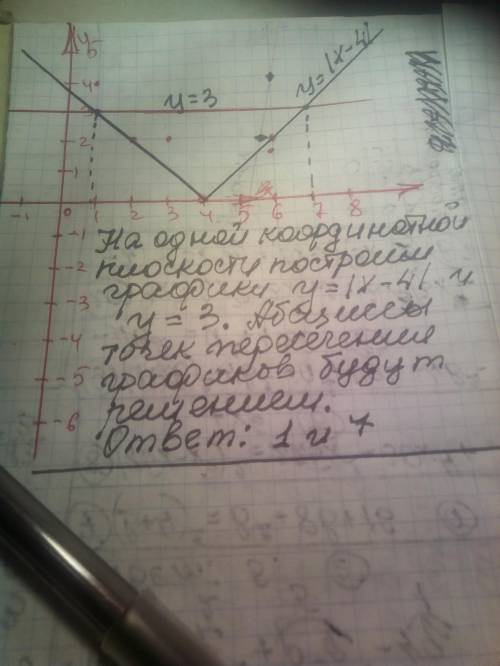 y
5
4
3
2
1
y=3
y=|x-4|
-1 0 1 2 3 4 5 6 7 8
-1
-2
-3
-4
-5
-6
На одной координатной
плоскости построим
графики y=|x-4| и
y=3. Абциссы
точек пересечения
графиков будут
решением.
Ответ: 1 и 7